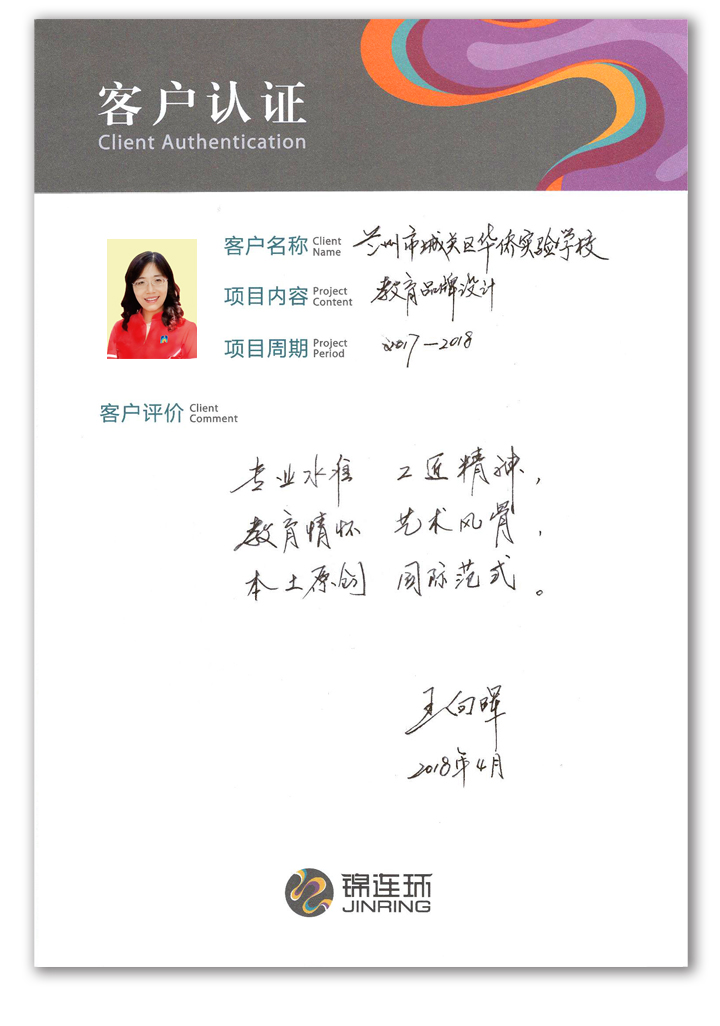 客户认证
Client Authentication
客户名称 Client Name 兰州市城关区华侨实验学校
项目内容 Project Content 教育品牌设计
项目周期 Project Period 2017—2018
客户评价 Client Comment
专业水准 工匠精神,
教育情怀 艺术风骨,
本土原创 国际范式。
王向晖
2018年4月
锦连环
JINRING